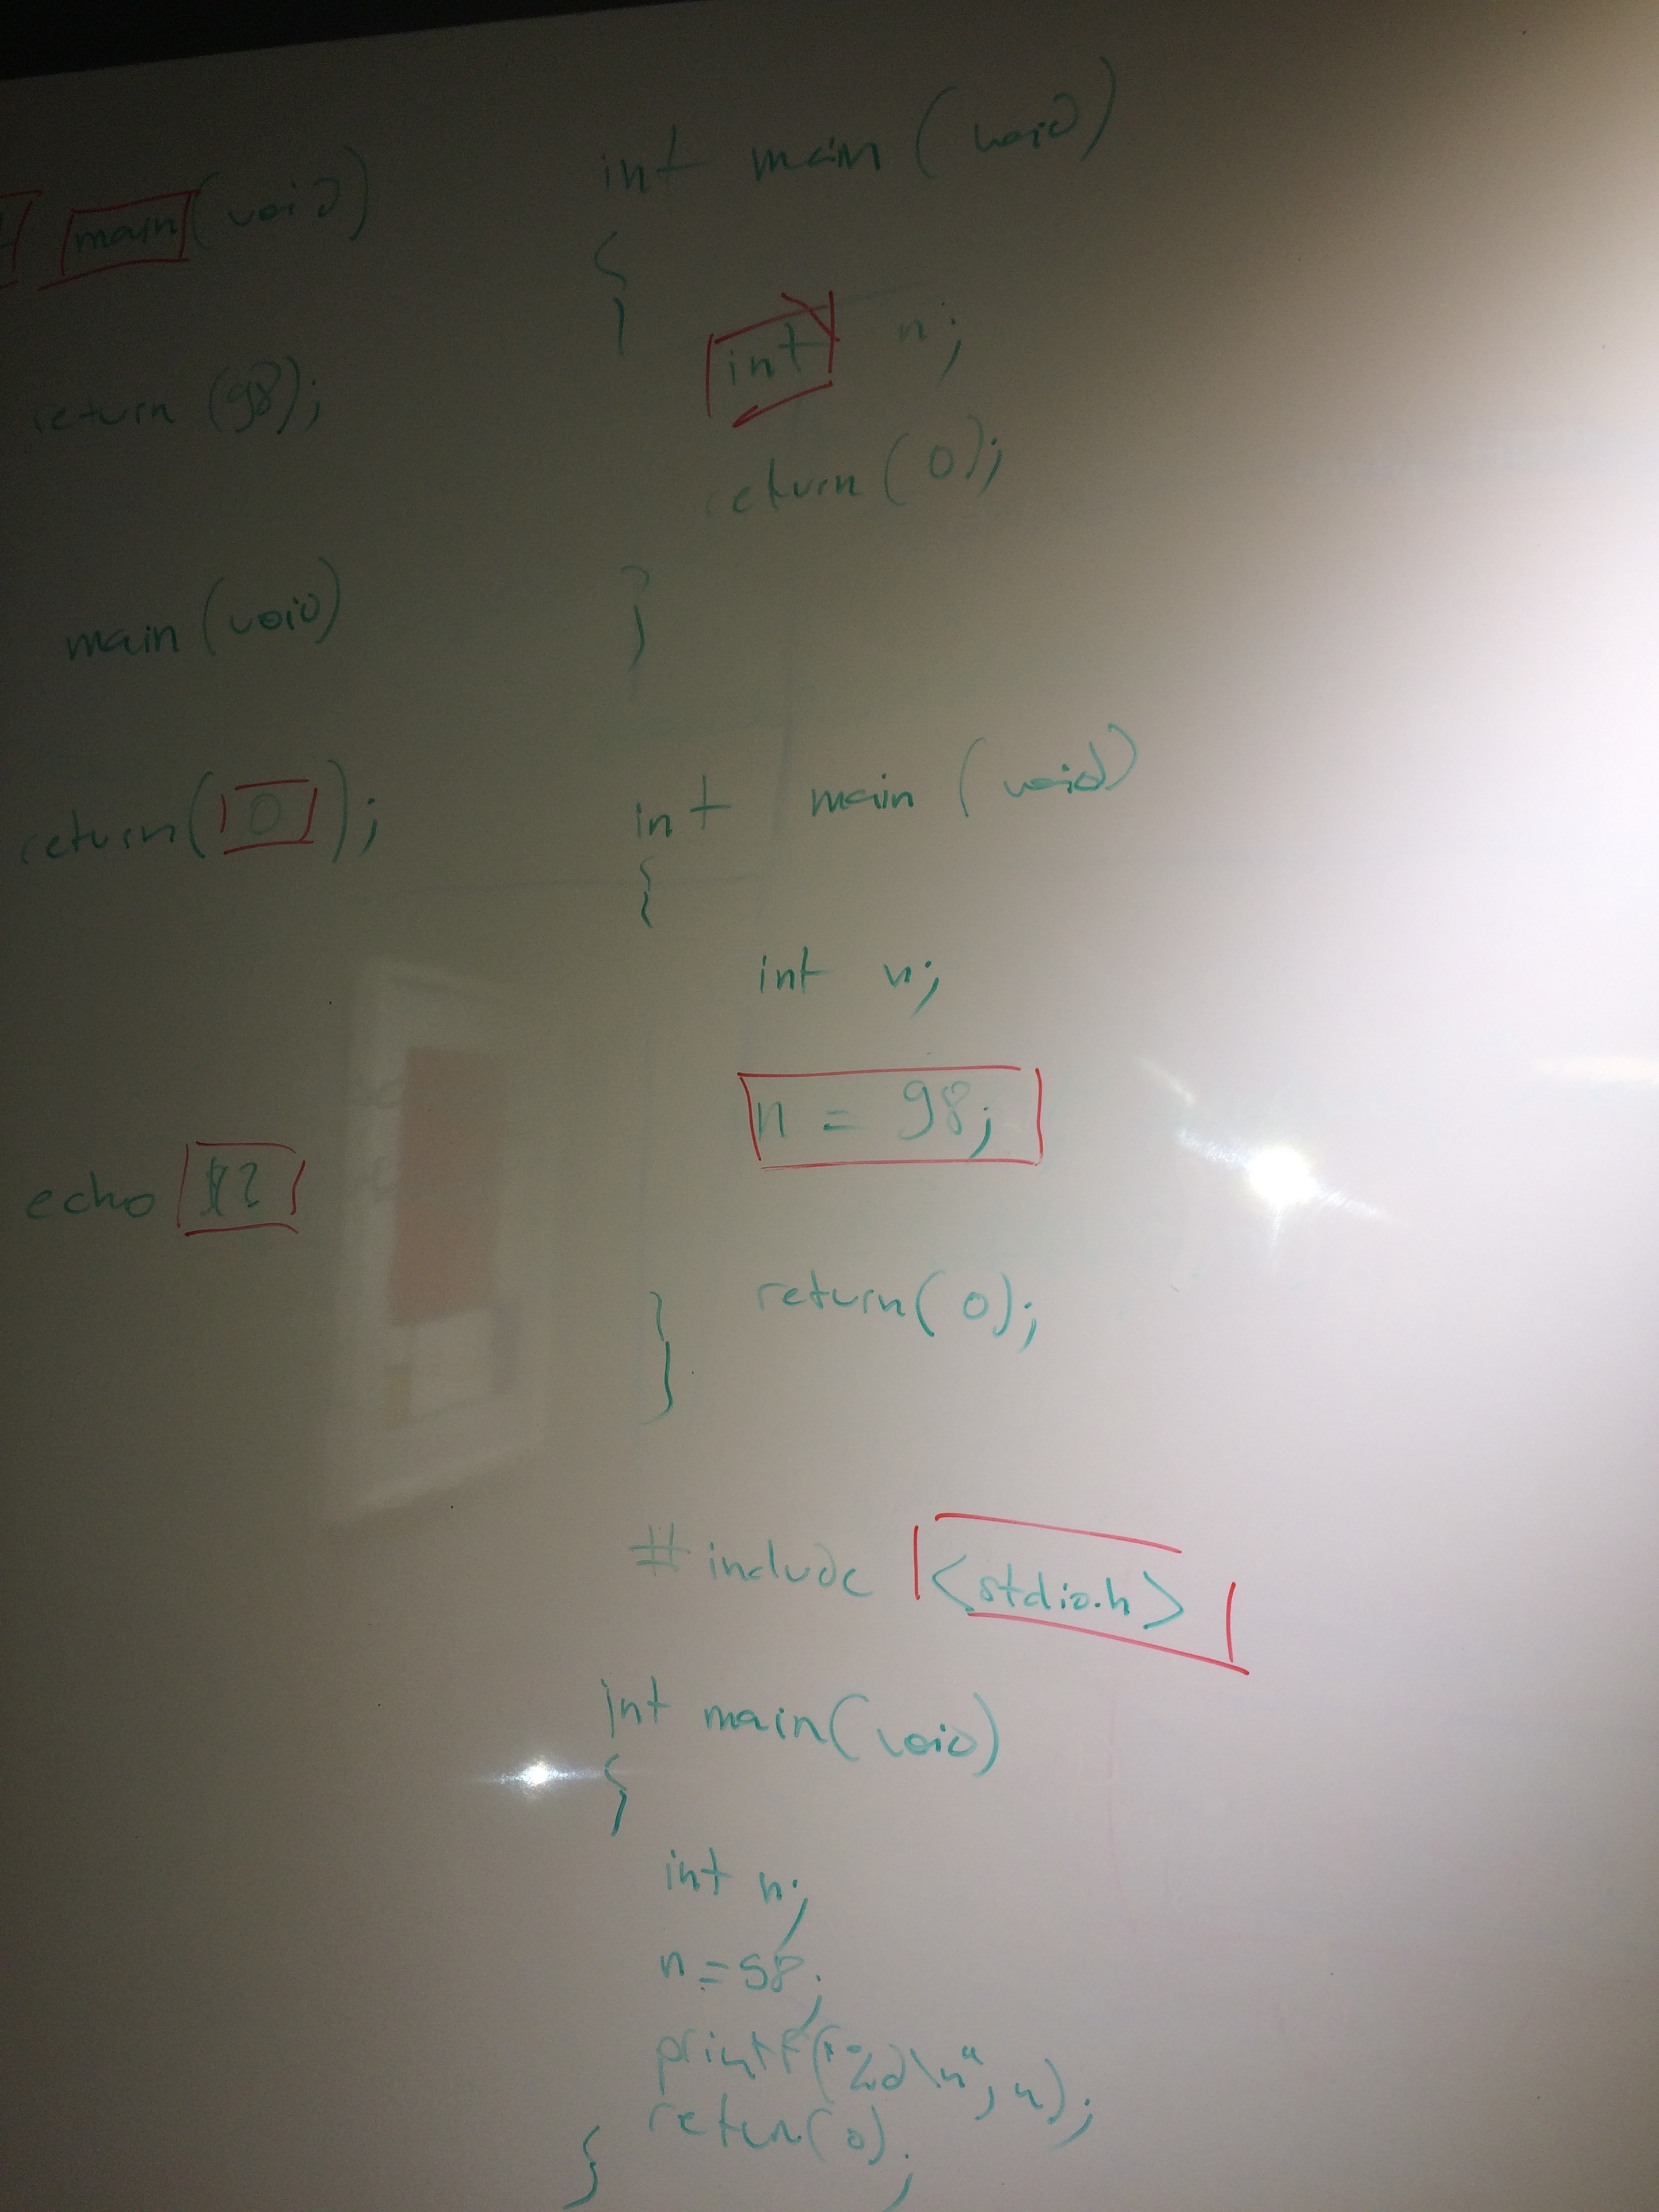 main(void)
return (98);
main(void)
return(0);
echo $?
int main (void)
{
int n;
return (0);
}
int main (void)
{
int n;
n = 98;
return(0);
}
#include <stdio.h>
int main(void)
{
int n;
n = 98;
printf("%d\n", n);
return(0);
}